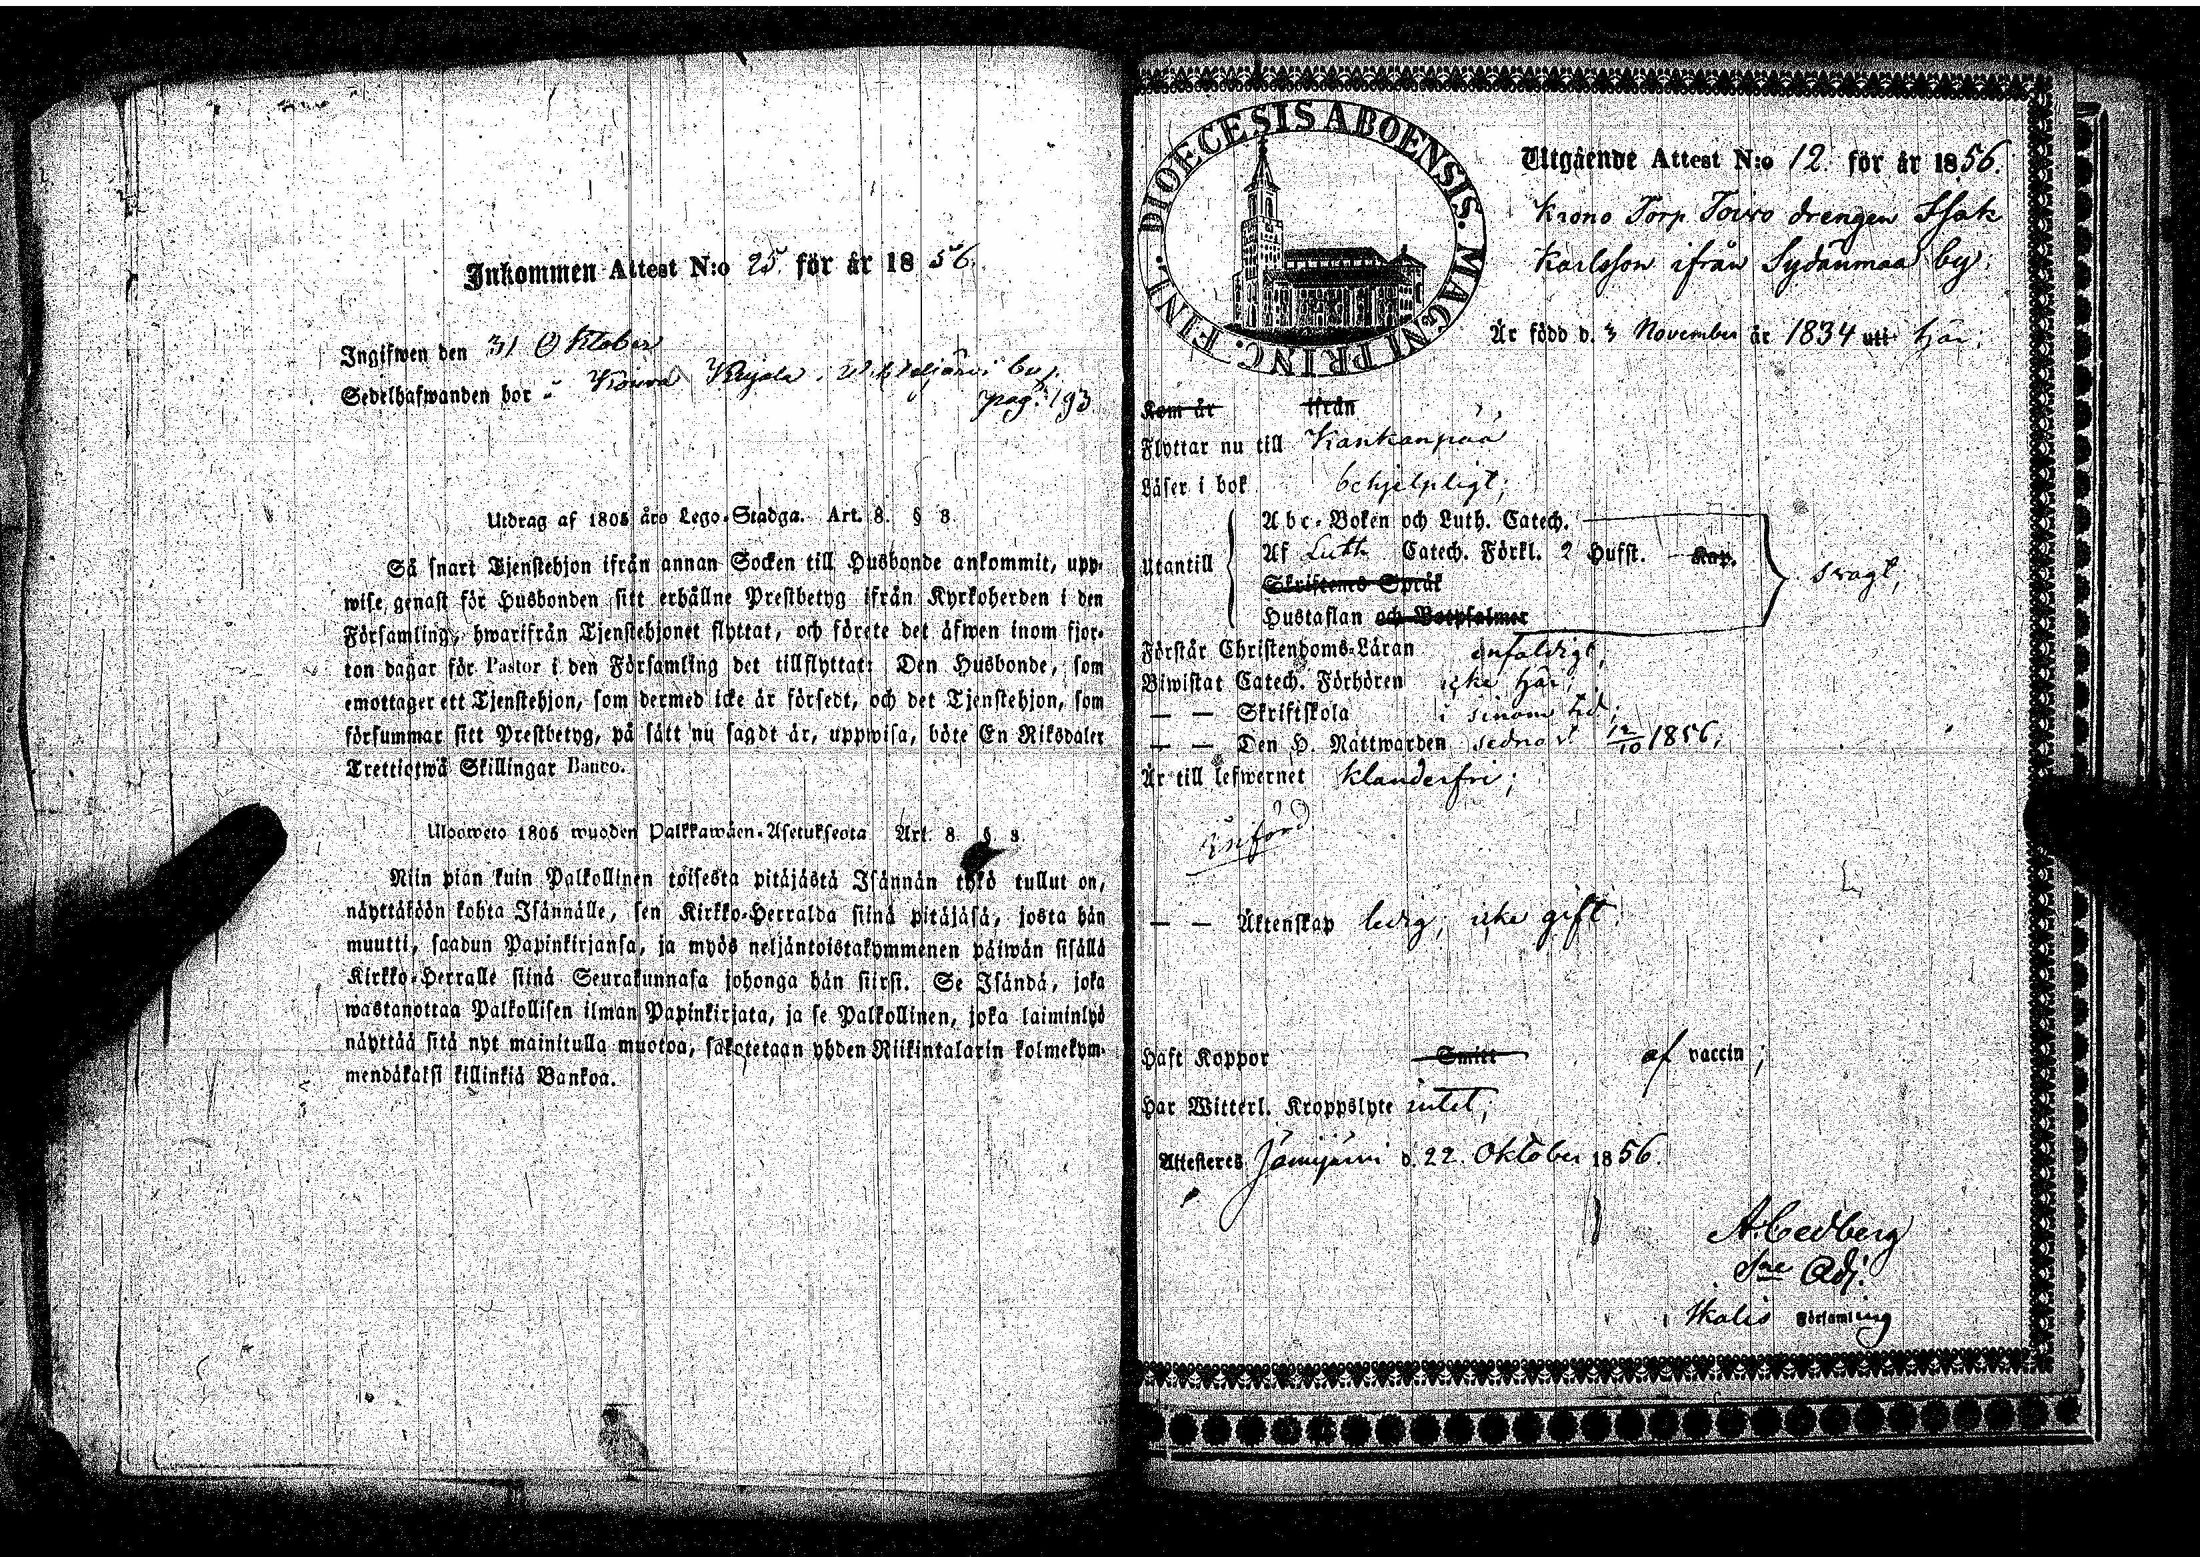 Inkommen Attest N:o 25 för år 1856.
Ingifwen den 31 Oktober
Sedelhafwanden bor by.
pag. 193
Utdrag af 1805 års Lego-Stadga. Art. 8. § 3.
Så snart Tjenstehjon ifrån annan Socken till Husbonde ankommit, upp-
wise genast för Husbonden sitt erhållne Prestbetyg ifrån Kyrkoherden i den
Församling, hwarifrån Tjenstehjonet flyttat, och förete det äfwen inom fjor-
ton dagar för Pastor i den Församling det tillflyttat: Den Husbonde, som
emottager ett Tjenstehjon, som dermed icke är försedt, och det Tjenstehjon, som
försummar sitt Prestbetyg, på sätt nu sagdt är, uppwisa, böte En Riksdaler
Trettiotwå Skillingar Banco.
Ulosweto 1805 wuoden Palkkawäen-Asetuksesta Art. 8 § 3.
Niin pian kuin Palkollinen toisesta pitäjästä Isännän tykö tullut on,
näyttäköön kohta Isännälle, sen Kirkko-Herralda siinä pitäjäsä, josta hän
muutti, saadun Papinkirjansa, ja myös neljäntoistakymmenen päiwän sisällä
Kirkko-Herralle siinä Seurakunnasa johonga hän siirsi. Se Isändä, joka
wastanottaa Palkollisen ilman Papinkirjata, ja se Palkollinen, joka laiminlyö
näyttää sitä nyt mainitulla muotoa, sakotetaan yhden Riikintalarin kolmekym-
mendäkaksi killinkiä Bankoa.
DIOECESIS ABOENSIS. MAGNI PRINC. FINL.
Utgående Attest N:o 12. för år 1856.
Krono Torp Toivo drengen Isak
Karlsson ifrån Sydänmaa by;
Är född d. 3 November år 1834 uti här;
Kom år ifrån
Flyttar nu till Kankanpää
Läser i bok behjelpligt;
Utantill
Abc-Boken och Luth. Catech.
Af Luth Catech. Förkl. 2 Hufst. Kap.
Skriftens Språk
Hustaflan och Botpsalmer
svagt;
Förstår Christendoms-Läran enfaldigt;
Biwistat Catech. Förhören icke här;
— — Skriftskola i sinom tid;
— — Den H. Nattwarden sednast 12/10 1856;
Är till lefwernet klanderfri;
— — Äktenskap ledig, icke gift.
Haft Koppor Smitt af vaccin;
Har Witterl. Kroppslyte intet;
Attesteres Jämijärvi d. 22. Oktober 1856.
A. Cedberg
Sac Adj.
Ikalis Församling